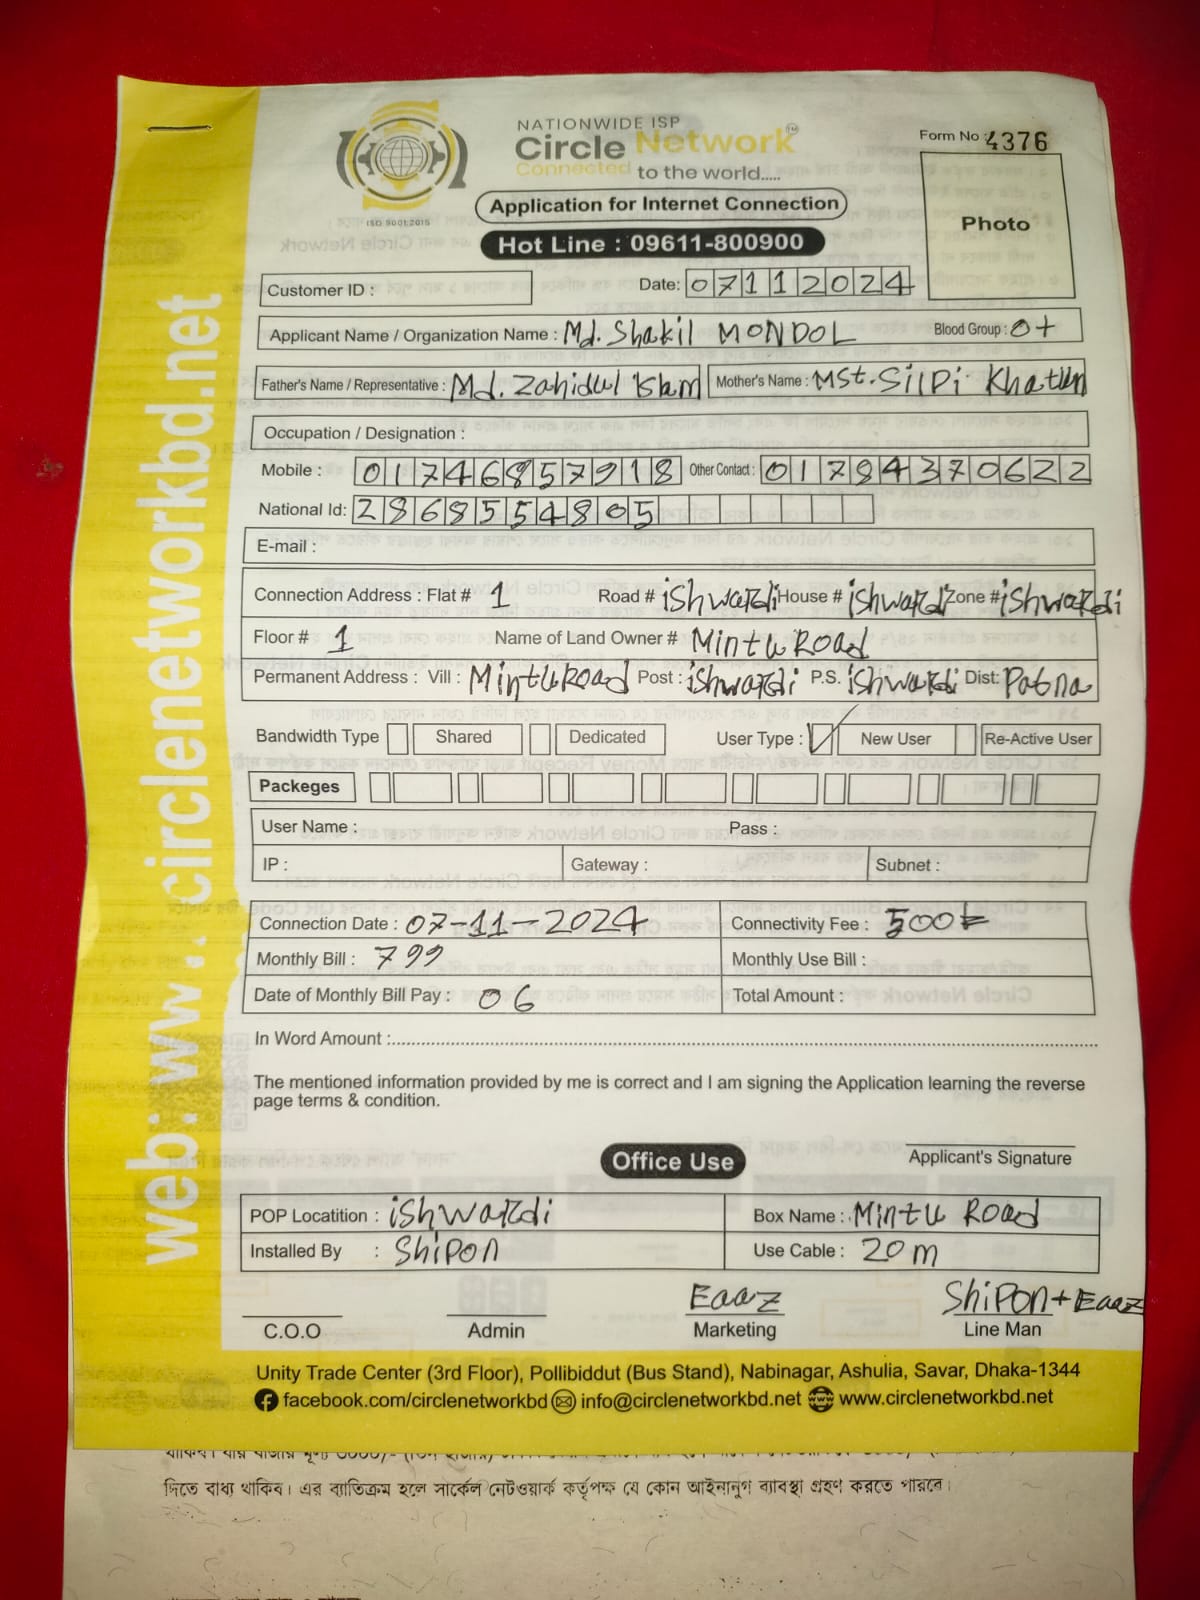 NATIONWIDE ISP
Circle Network™
Connected to the world.....
ISO 9001:2015
Form No : 4376
Application for Internet Connection
Photo
Hot Line : 09611-800900
Customer ID :
Date: 07112024
Applicant Name / Organization Name : Md. Shakil MONDOL Blood Group : O+
Father's Name / Representative : Md. Zahidul Islam Mother's Name : MSt. SilPi Khatun
Occupation / Designation :
Mobile : 01746857918 Other Contact : 01784370622
National Id: 2868554805
E-mail :
Connection Address : Flat # 1 Road # iShwaRdi House # iShwaRdi Zone # iShwaRdi
Floor # 1 Name of Land Owner # Mintu Road
Permanent Address : Vill : Mintu Road Post : iShwaRdi P.S. iShwaRdi Dist: Pabna
Bandwidth Type Shared Dedicated User Type : New User Re-Active User
Packeges
User Name : Pass :
IP : Gateway : Subnet :
Connection Date : 07-11-2024 Connectivity Fee : 500/=
Monthly Bill : 799 Monthly Use Bill :
Date of Monthly Bill Pay : 06 Total Amount :
In Word Amount :
The mentioned information provided by me is correct and I am signing the Application learning the reverse
page terms & condition.
Office Use
Applicant's Signature
POP Locatition : iShwaRdi Box Name : Mintu Road
Installed By : ShiPon Use Cable : 20m
Eaaz ShiPon + Eaaz
C.O.O Admin Marketing Line Man
Unity Trade Center (3rd Floor), Pollibiddut (Bus Stand), Nabinagar, Ashulia, Savar, Dhaka-1344
facebook.com/circlenetworkbd info@circlenetworkbd.net www.circlenetworkbd.net
web: www.circlenetworkbd.net
দিতে বাধ্য থাকিব। এর ব্যতিক্রম হলে সার্কেল নেটওয়ার্ক কর্তৃপক্ষ যে কোন আইনানুগ ব্যাবস্থা গ্রহণ করতে পারবে।